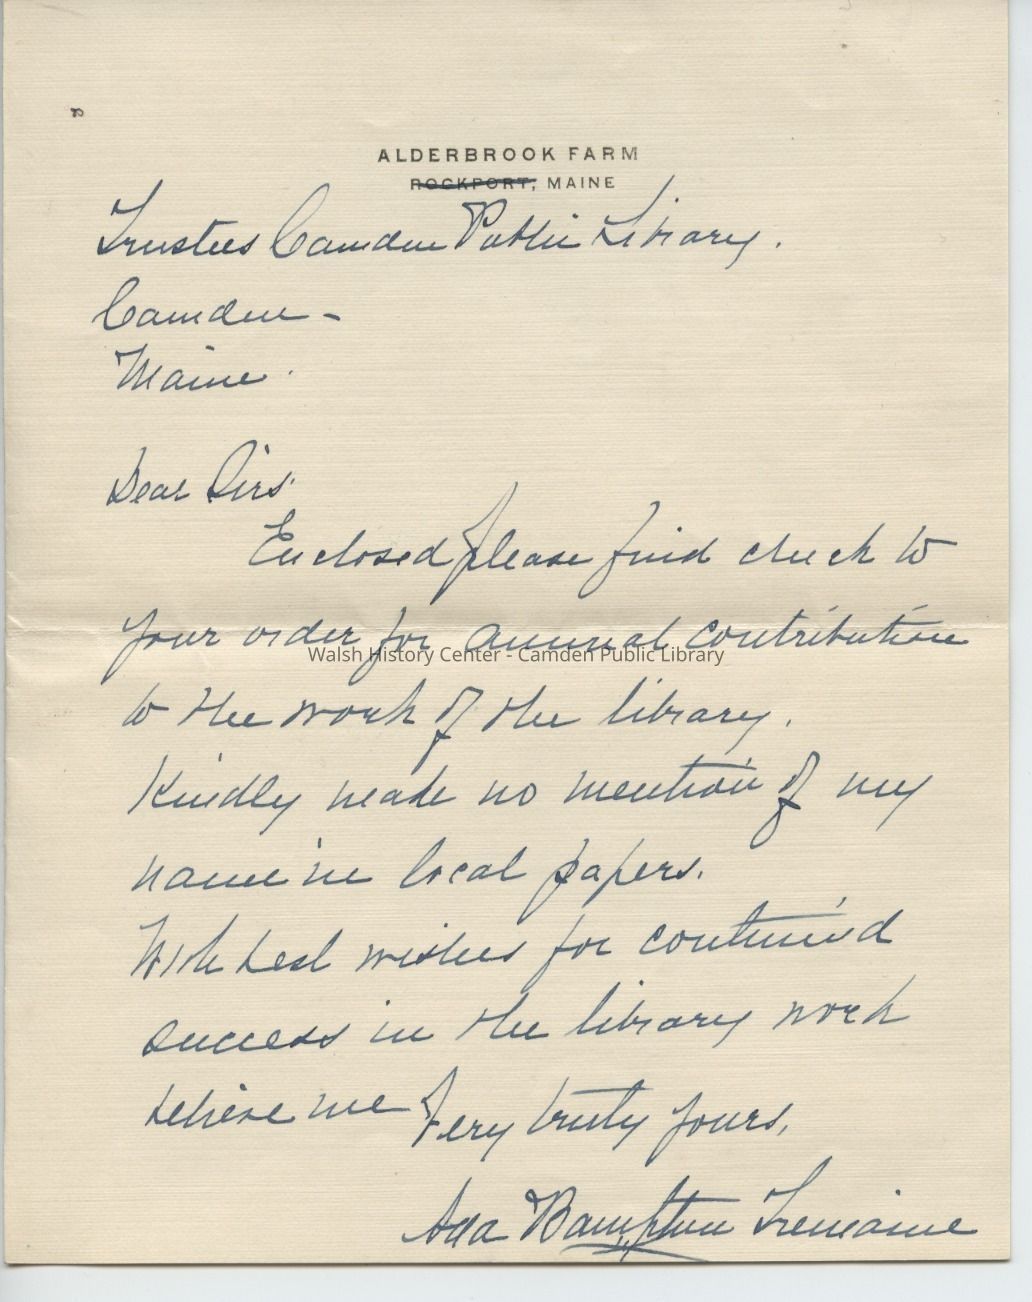 ALDERBROOK FARM
ROCKPORT, MAINE
Trustees Camden Public Library.
Camden -
Maine.
Dear Sirs.
Enclosed please find check to
your order for annual contribution
Walsh History Center - Camden Public Library
to the work of the library.
Kindly make no mention of my
name in local papers.
With best wishes for continued
success in the library work
believe me Very truly yours,
Ada Bampton Tremaine